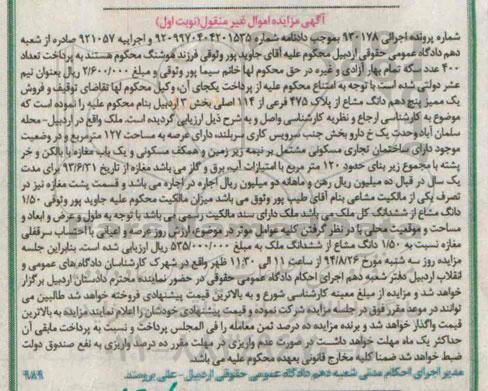 آگهی مزایده اموال غیر منقول(نوبت اول)
شماره پرونده اجرائی ۹۳۰۱۷۸ بموجب دادنامه شماره ۹۲۰۹۹۷۰۴۰۴۲۰۱۵۳۵ و اجراییه ۹۲۱۰۵۷ صادره از شعبه
دهم دادگاه عمومی حقوقی اردبیل محکوم علیه آقای جاوید پور وثوقی فرزند موشنگ محکوم هستند به پرداخت تعداد
۴۰۰ عدد سکه تمام بهار آزادی و غیره در حق محکوم لها خانم سیما پور وثوقی و مبلغ ۲/۶۰۰/۰۰۰ ریال بعنوان نیم
عشر دولتی شده است با توجه به امتناع محکوم علیه از پرداخت یکجای آن، وکیل محکوم لها تقاضای توقیف و فروش
یک ممیز پنج دهم دانگ مشاع از پلاک ۴۷۵ فرعی از ۱۱۴ اصلی بخش ۳ اردبیل بنام محکوم علیه را نموده است که
موضوع به کارشناسی ارجاع و نظریه کارشناسی واصل و به شرح ذیل ارزیابی گردیده است. ملک واقع در اردبیل- محله
سلمان آباد وحدت یک خ دارو بخش جنب سرویس کاری سربلند، دارای عرصه به مساحت ۱۲۷ مترمربع و در وضعیت
موجود دارای ساختمان تجاری مسکونی مشتمل بر نیمه زیر زمین و همکف مسکونی و یک باب مغازه با بالکن و خر
پشته با مجموع زیر بنای حدود ۱۲۰ متر مربع با امتیازات آب، برق و گاز می باشد مغازه از تاریخ ۹۳/۶/۳۱ برای مدت
یک سال در قبال ده میلیون ریال رهن و ماهانه دو میلیون ریال اجاره در اجاره می باشد و قسمت پشت مغازه نیز در
تصرف یکی از مالکیت مشاعی بنام آقای طیب پور وثوق می باشد میزان مالکیت محکوم علیه جاوید پور وثوقی ۱/۵۰
دانگ مشاع از ششدانگ کل ملک می باشد ملک دارای سند مالکیت رسمی می باشد با توجه به طول و عرض و ابعاد و
مساحت و موقعیت محلی با در نظر گرفتن کلیه عوامل موثر در موضوع، ارزش روز عرصه و اعیانی با احتساب سرقفلی
مغازه نسبت به ۱/۵۰ دانگ مشاع از ششدانگ ملک به مبلغ ۵۳۵/۰۰۰/۰۰۰ ریال ارزیابی شده است. بنابراین جلسه
مزایده روز سه شنبه مورخ ۹۴/۸/۲۶ از ساعت ۱۱ الی ۱۱:۳۰ ظهر واقع در شهرک کارشناسان دادگاه های عمومی و
انقلاب اردبیل دفتر شعبه دهم اجرای احکام دادگاه عمومی حقوقی در حضور نماینده محترم دادستان اردبیل بر گزار
خواهد شد و مزایده از مبلغ معینه کارشناسی شورع و به بالاترین قیمت پیشنهادی فروخته خواهد شد طالبین می
توانند در موعد مقرر فوق در جلسه مزایده شرکت نموده و قیمت پیشنهادی خودشان را اعلام نمایند مزایده به بالاترین
قیمت واگذار خواهد شد و برنده مزایده ده درصد ثمن معامله را فی المجلس پرداخت و نسبت به پرداخت مابقی آن
حداکثر یک ماه مهلت خواهد داشت در صورت عدم واریزی در مهلت مقرر ده درصد واریزی به نفع صندوق دولت
ضبط خواهد شد ضمنا کلیه مخارج قانونی بعهده محکوم علیه می باشد
مدیر اجرای احکام مدنی شعبه دهم دادگاه عمومی حقوقی اردبیل - علی برومند
۹۸۹